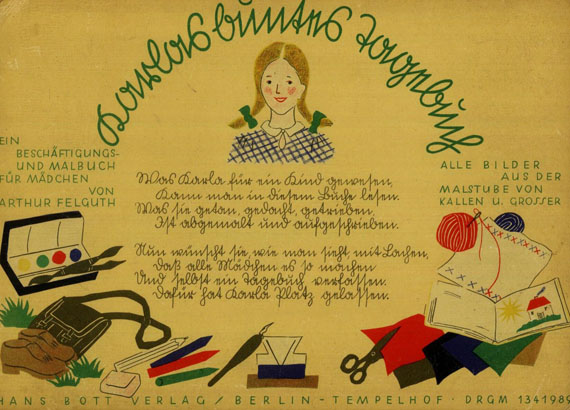 Karlas buntes Tagebuch
EIN
BESCHÄFTIGUNGS-
UND MALBUCH
FÜR MÄDCHEN
VON
ARTHUR FELGUTH
ALLE BILDER
AUS DER
MALSTUBE VON
KALLEN U. GROSSER
Was Karla für ein Kind gewesen,
Kann man in desem Buche lesen.
Was sie getan, gedacht, getrieben,
Ist abgemalt und aufgeschrieben.
Nun wünscht sie, wie man sieht, mit Lachen,
Daß alle Mädchen es so machen
Und selbst ein Tagebuch verfassen.
Dafür hat Karla Platz gelassen.
HANS BOTT VERLAG / BERLIN - TEMPELHOF · DRGM 1341989